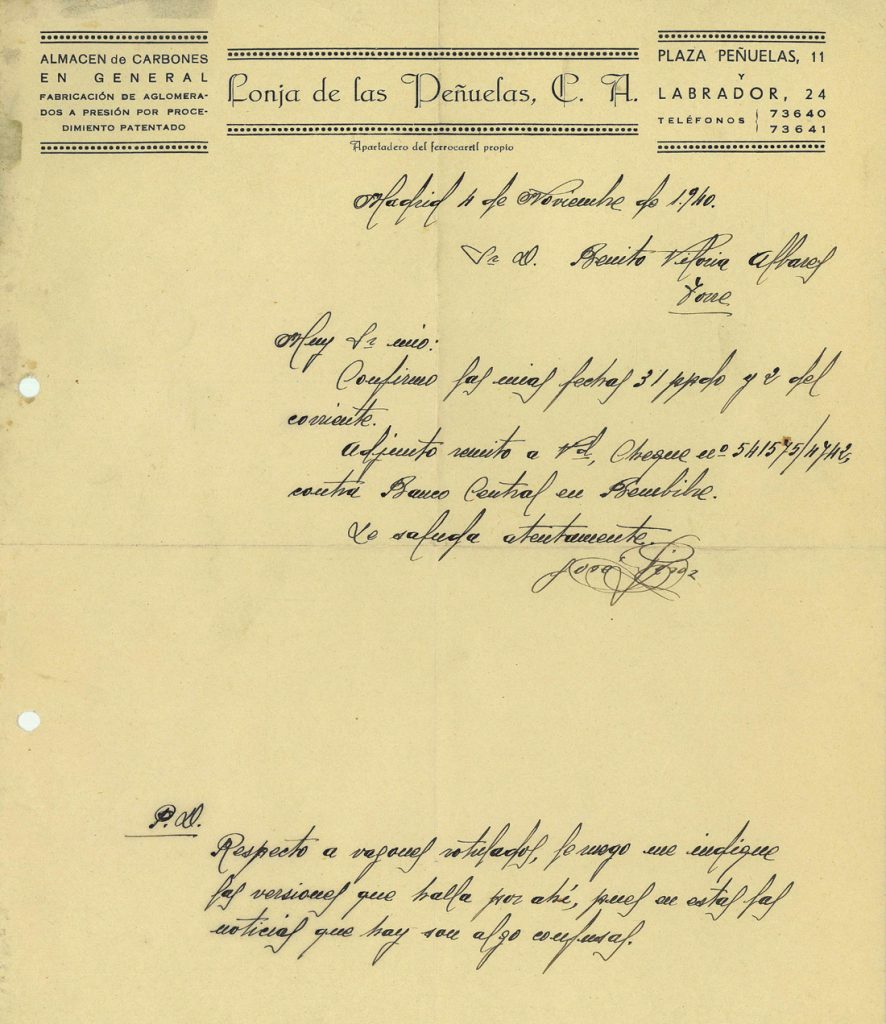 ALMACEN de CARBONES
EN GENERAL
FABRICACIÓN DE AGLOMERA-
DOS A PRESIÓN POR PROCE-
DIMIENTO PATENTADO
Lonja de las Peñuelas, C. A.
Apartadero del ferrocarril propio
PLAZA PEÑUELAS, 11
Y
LABRADOR, 24
TELÉFONOS 73640
73641
Madrid 4 de Noviembre de 1.940.
Sr D. Benito Viloria Albares
Torre
Muy Sr mio:
Confirmo las mias fechas 31 ppdo y 2 del
corriente.
Adjunto remito a Vd, Cheque nº 541575/4742,
contra Banco Central en Bembibre.
Le saluda atentamente.
P.D.
Respecto a vagones rotulados, le ruego me indique
las versiones que halla por ahí, pues en estas las
noticias que hay son algo confusas.